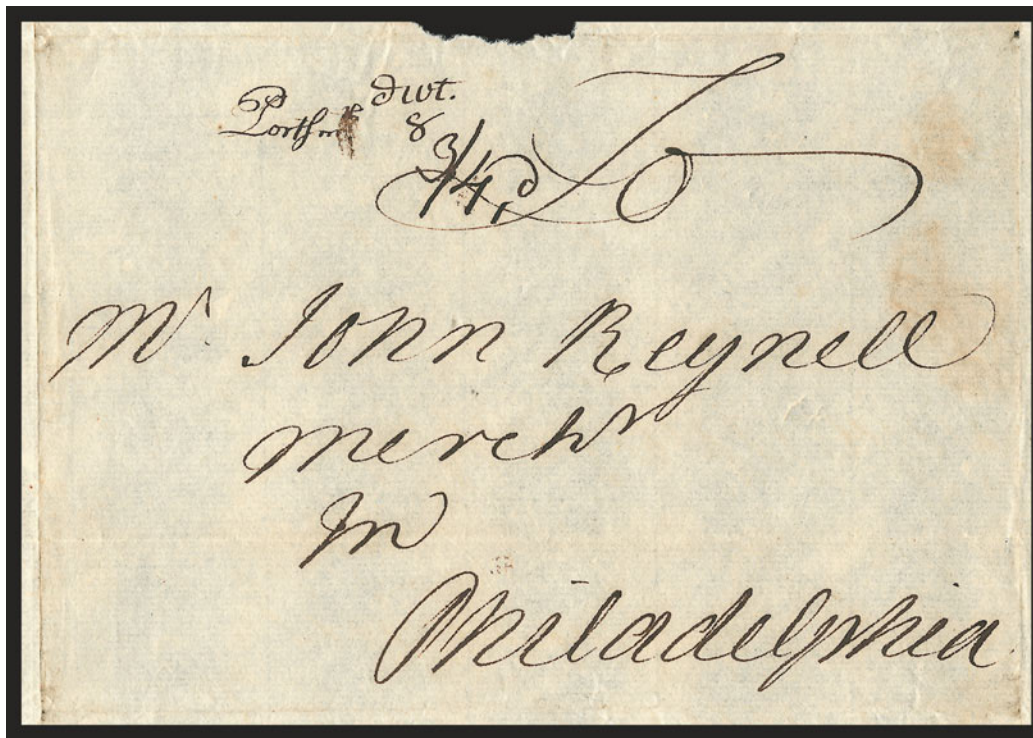 dwt.
Portsmo 8
3/4d To
Mr. John Reynell
mercht
In
Philadelphia